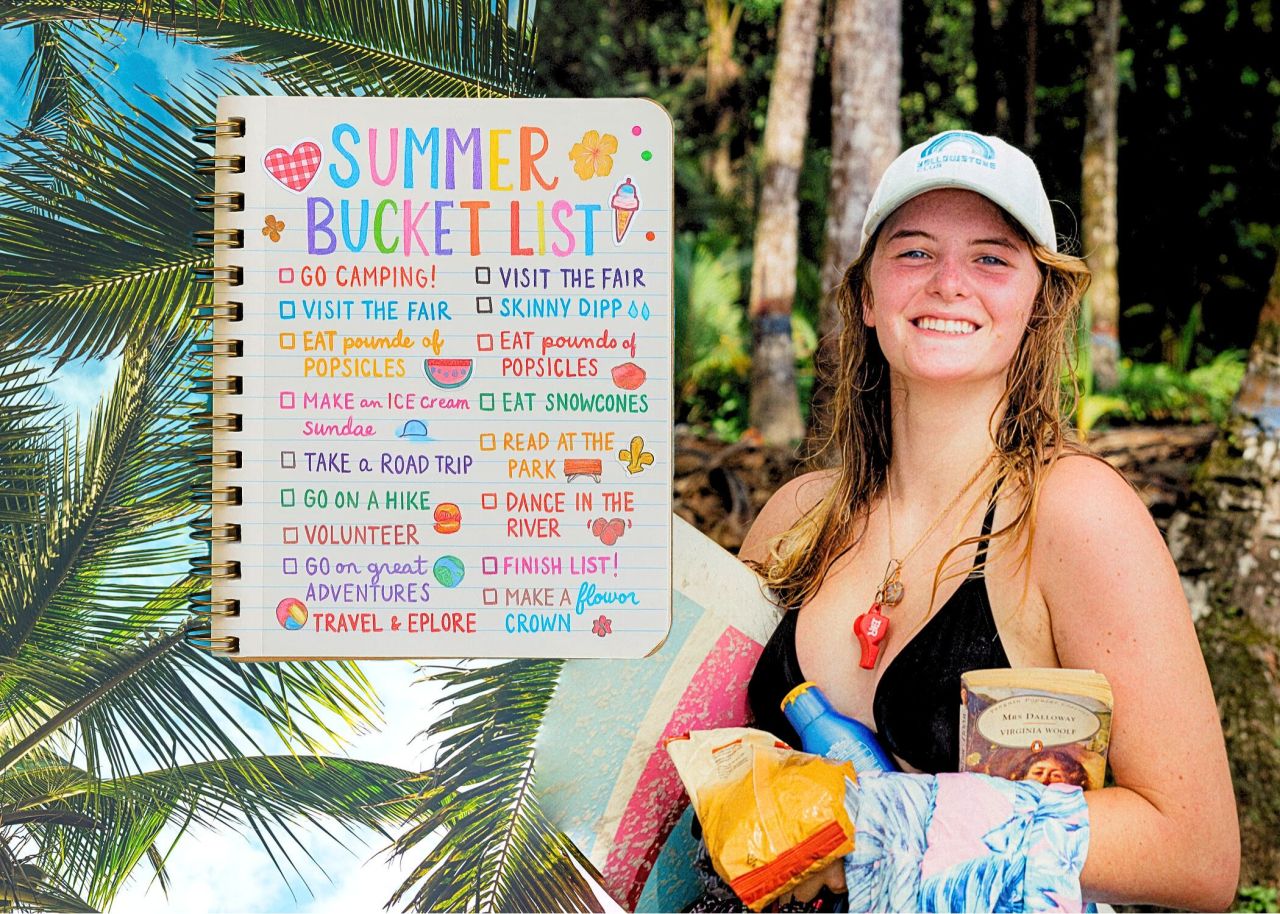 SUMMER
BUCKET LIST
GO CAMPING!
VISIT THE FAIR
EAT pounde of
POPSICLES
MAKE an ICE cream
sundae
TAKE a ROAD TRIP
GO ON A HIKE
VOLUNTEER
GO on great
ADVENTURES
TRAVEL & EPLORE
VISIT THE FAIR
SKINNY DIPP
EAT pounds of
POPSICLES
EAT SNOWCONES
READ AT THE
PARK
DANCE IN THE
RIVER
FINISH LIST!
MAKE A flowor
CROWN
YELLOWSTONE
CLUB
MRS DALLOWAY
VIRGINIA WOOLF